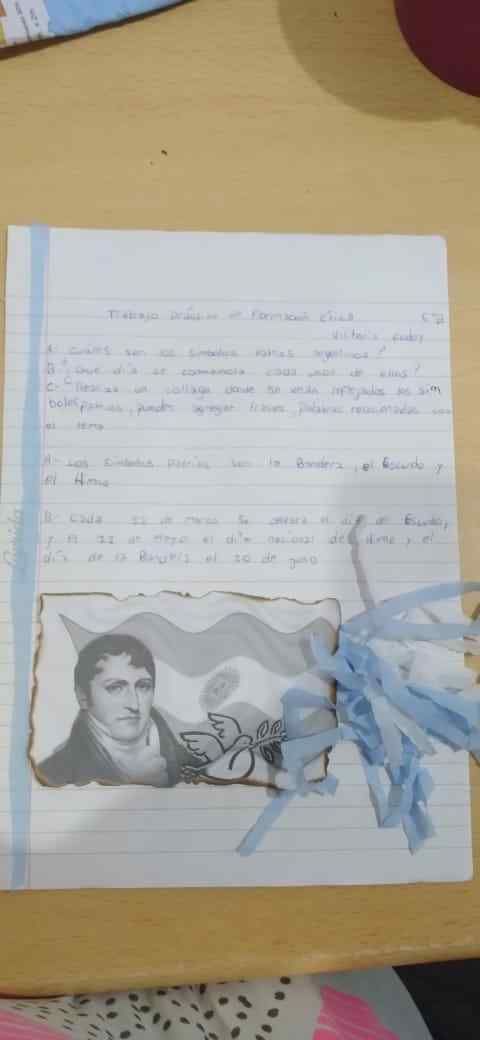 Trabajo práctico de Formación Ética 5°A
Victoria Godoy
A- Cuáles son los símbolos patrios argentinos?
B- ¿Qué día se conmemora cada uno de ellos?
C- Realiza un collage donde se vean reflejados los sím
bolos patrios, puedes agregar frases, palabras relacionadas con
el tema
A- Los símbolos patrios son la Bandera, el Escudo y
el Himno
B- Cada 12 de Marzo Se celebra el día de Escudo,
y el 11 de Mayo el día nacional del himno y el
día de la Bandera el 20 de junio